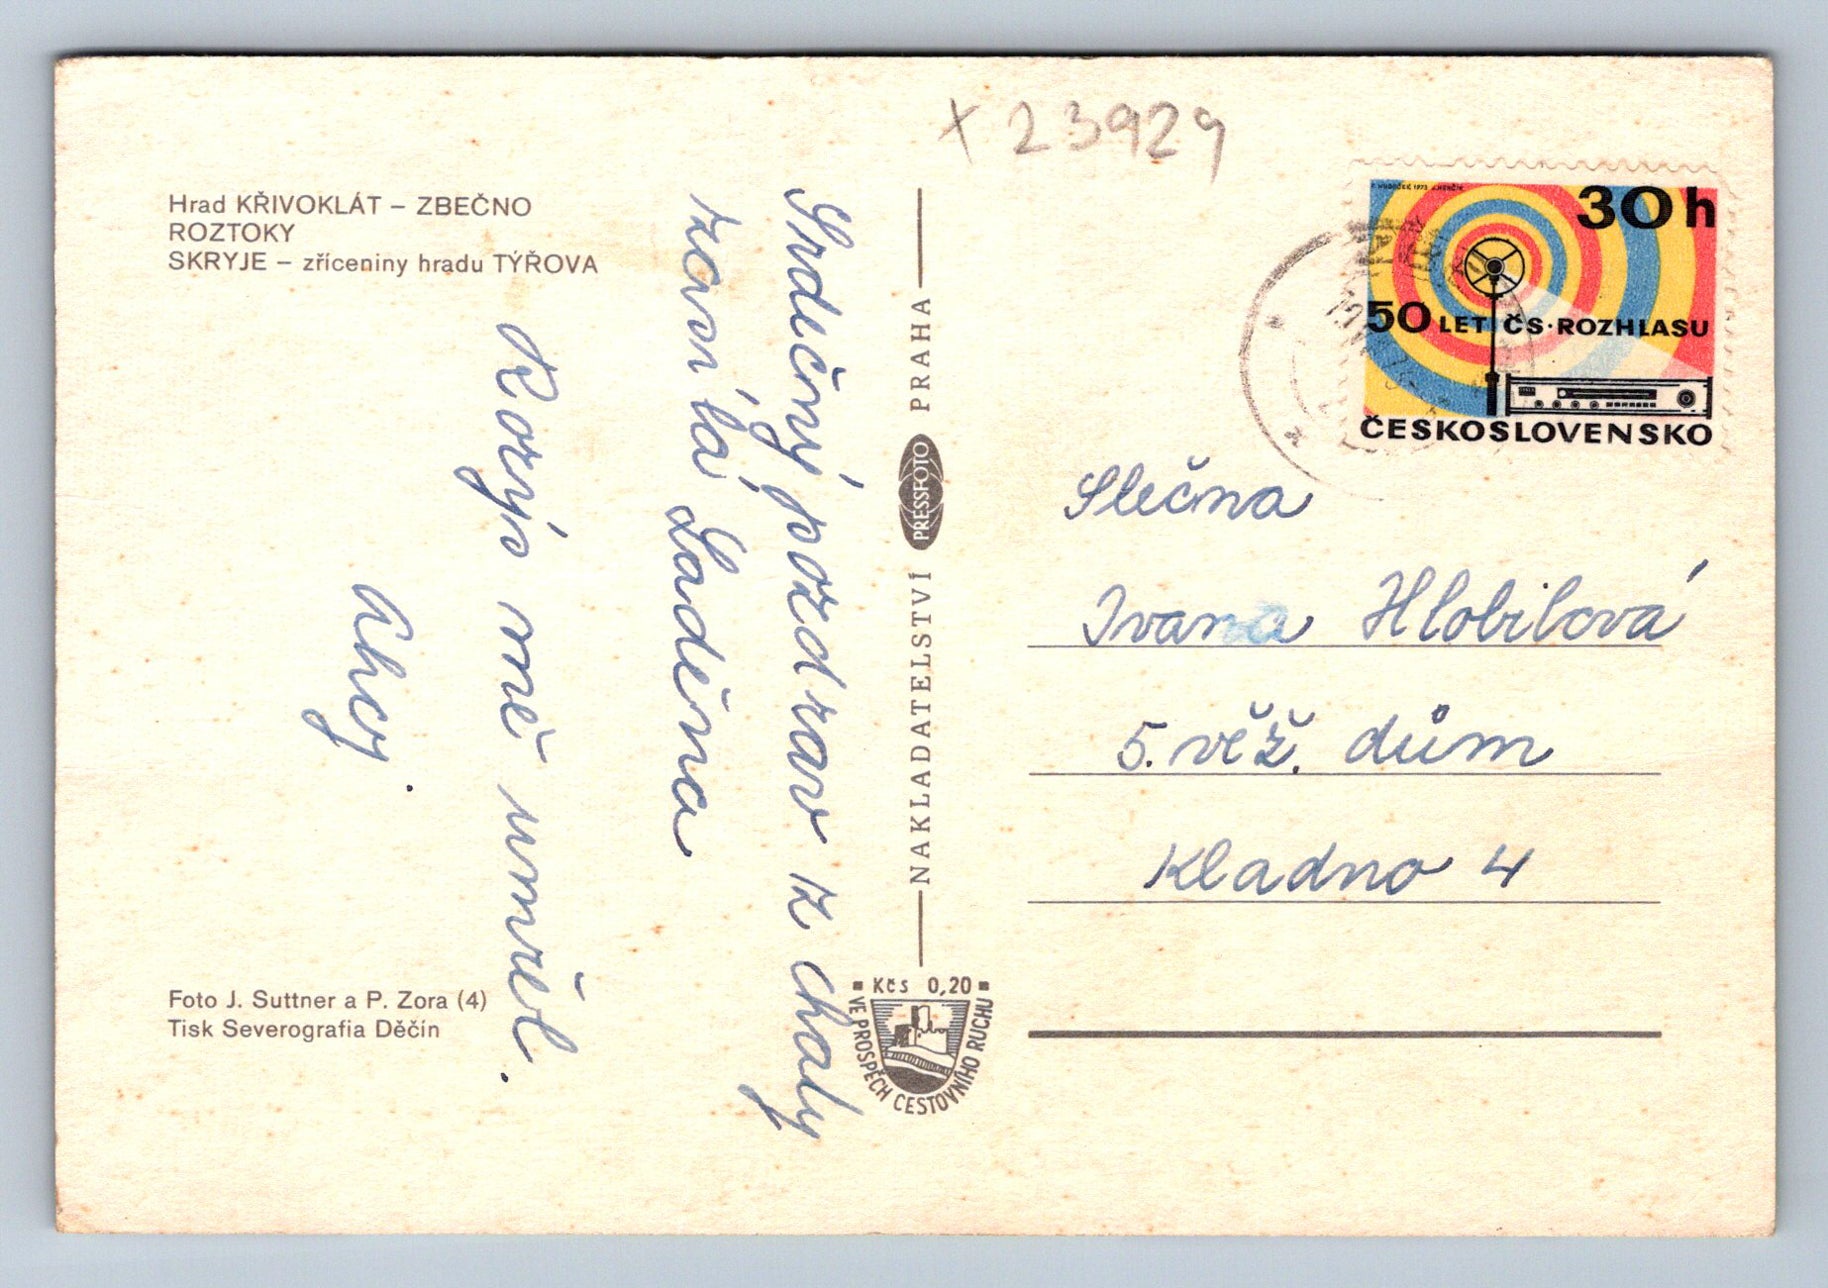 Hrad KŘIVOKLÁT – ZBEČNO
ROZTOKY
SKRYJE – zříceniny hradu TÝŘOVA
Srdečný pozdrav z chaty
Laděna
mě umřel.
Ahoj
Foto J. Suttner a P. Zora (4)
Tisk Severografia Děčín
NAKLADATELSTVÍ PRESSFOTO PRAHA
Kčs 0,20
VE PROSPĚCH CESTOVNÍHO RUCHU
x 23929
30 h
50 LET ČS·ROZHLASU
ČESKOSLOVENSKO
Slečna
Ivana Hlobilová
5. věž. dům
Kladno 4